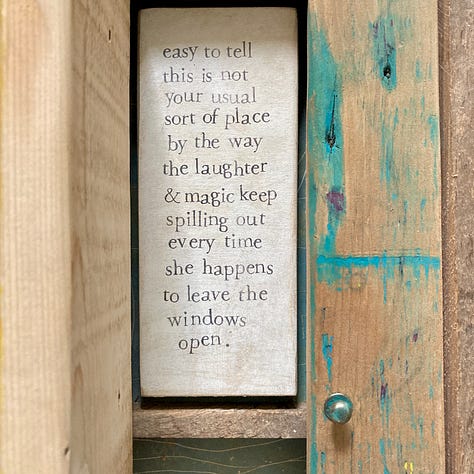 easy to tell
this is not
your usual
sort of place
by the way
the laughter
& magic keep
spilling out
every time
she happens
to leave the
windows
open.